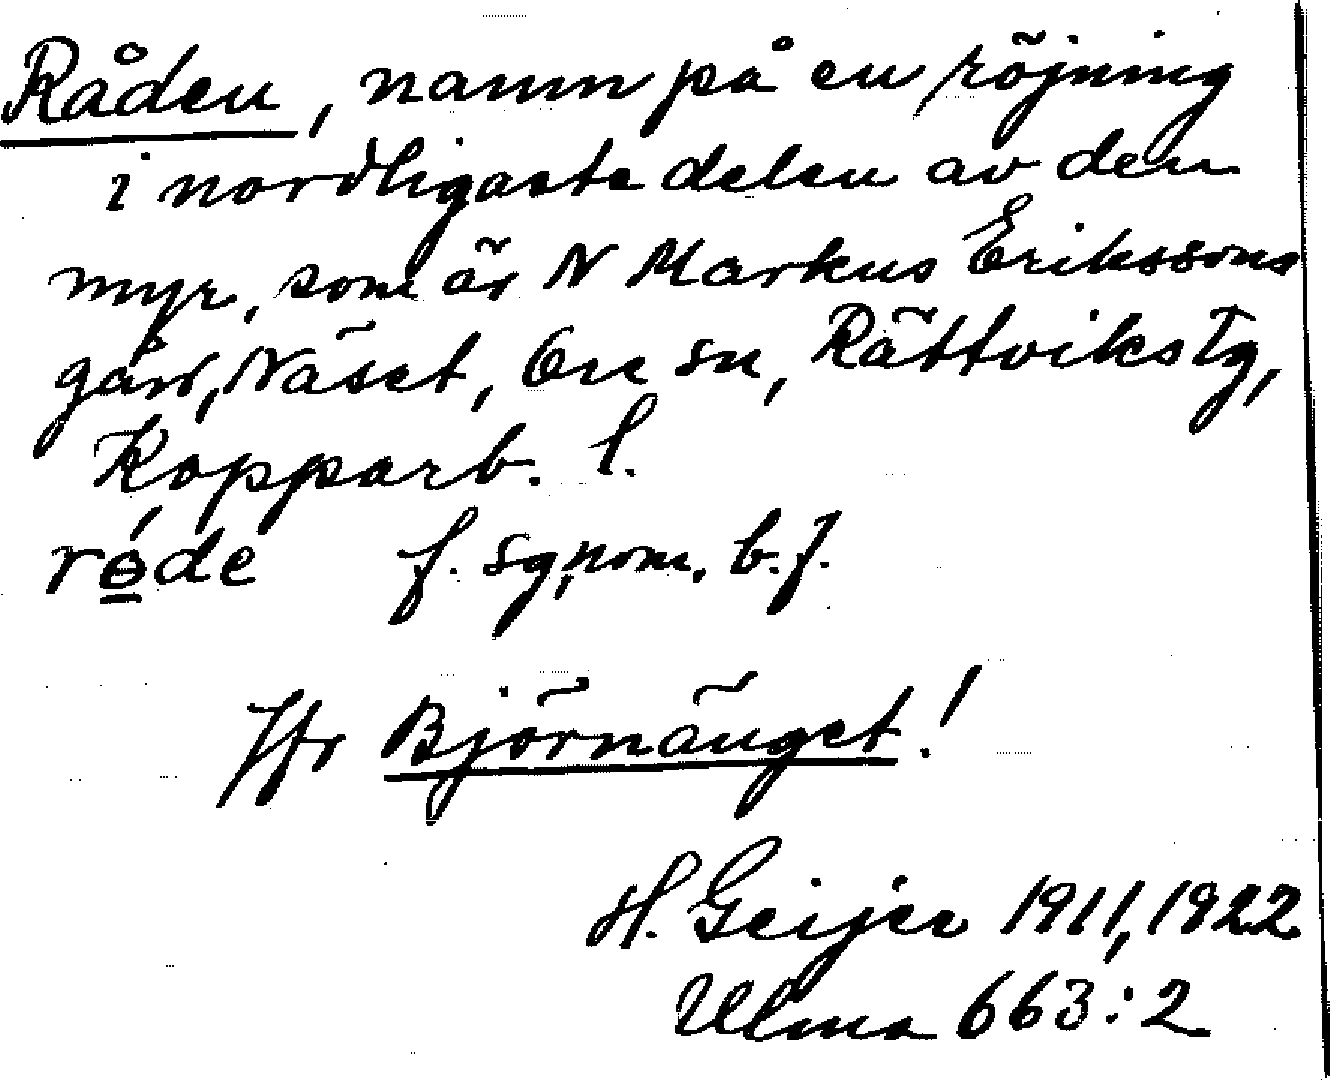 Råden, namn på en röjning
i nordligaste delen av den
myr, som är N Markus Erikssons
gård, Näset, Ore sn, Rättviks tg,
Kopparb. l.
rɵ́de f. sg, nom. b. f.
Jfr Björnänget!
H. Geijer 1911, 1922
Ulma 663:2